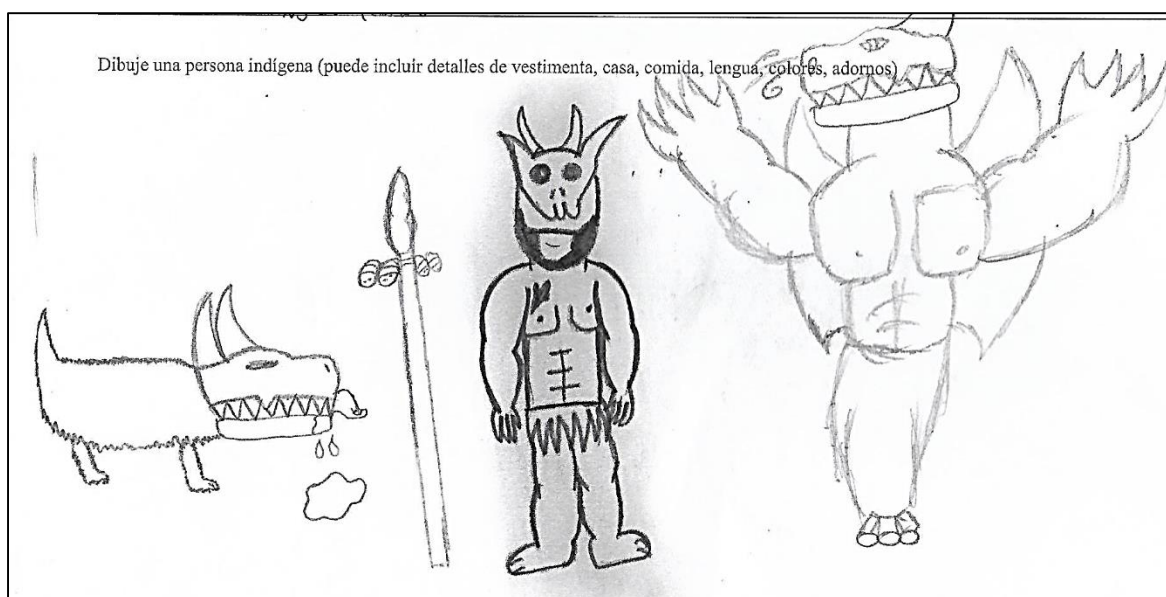 Dibuje una persona indígena (puede incluir detalles de vestimenta, casa, comida, lengua, colores, adornos)